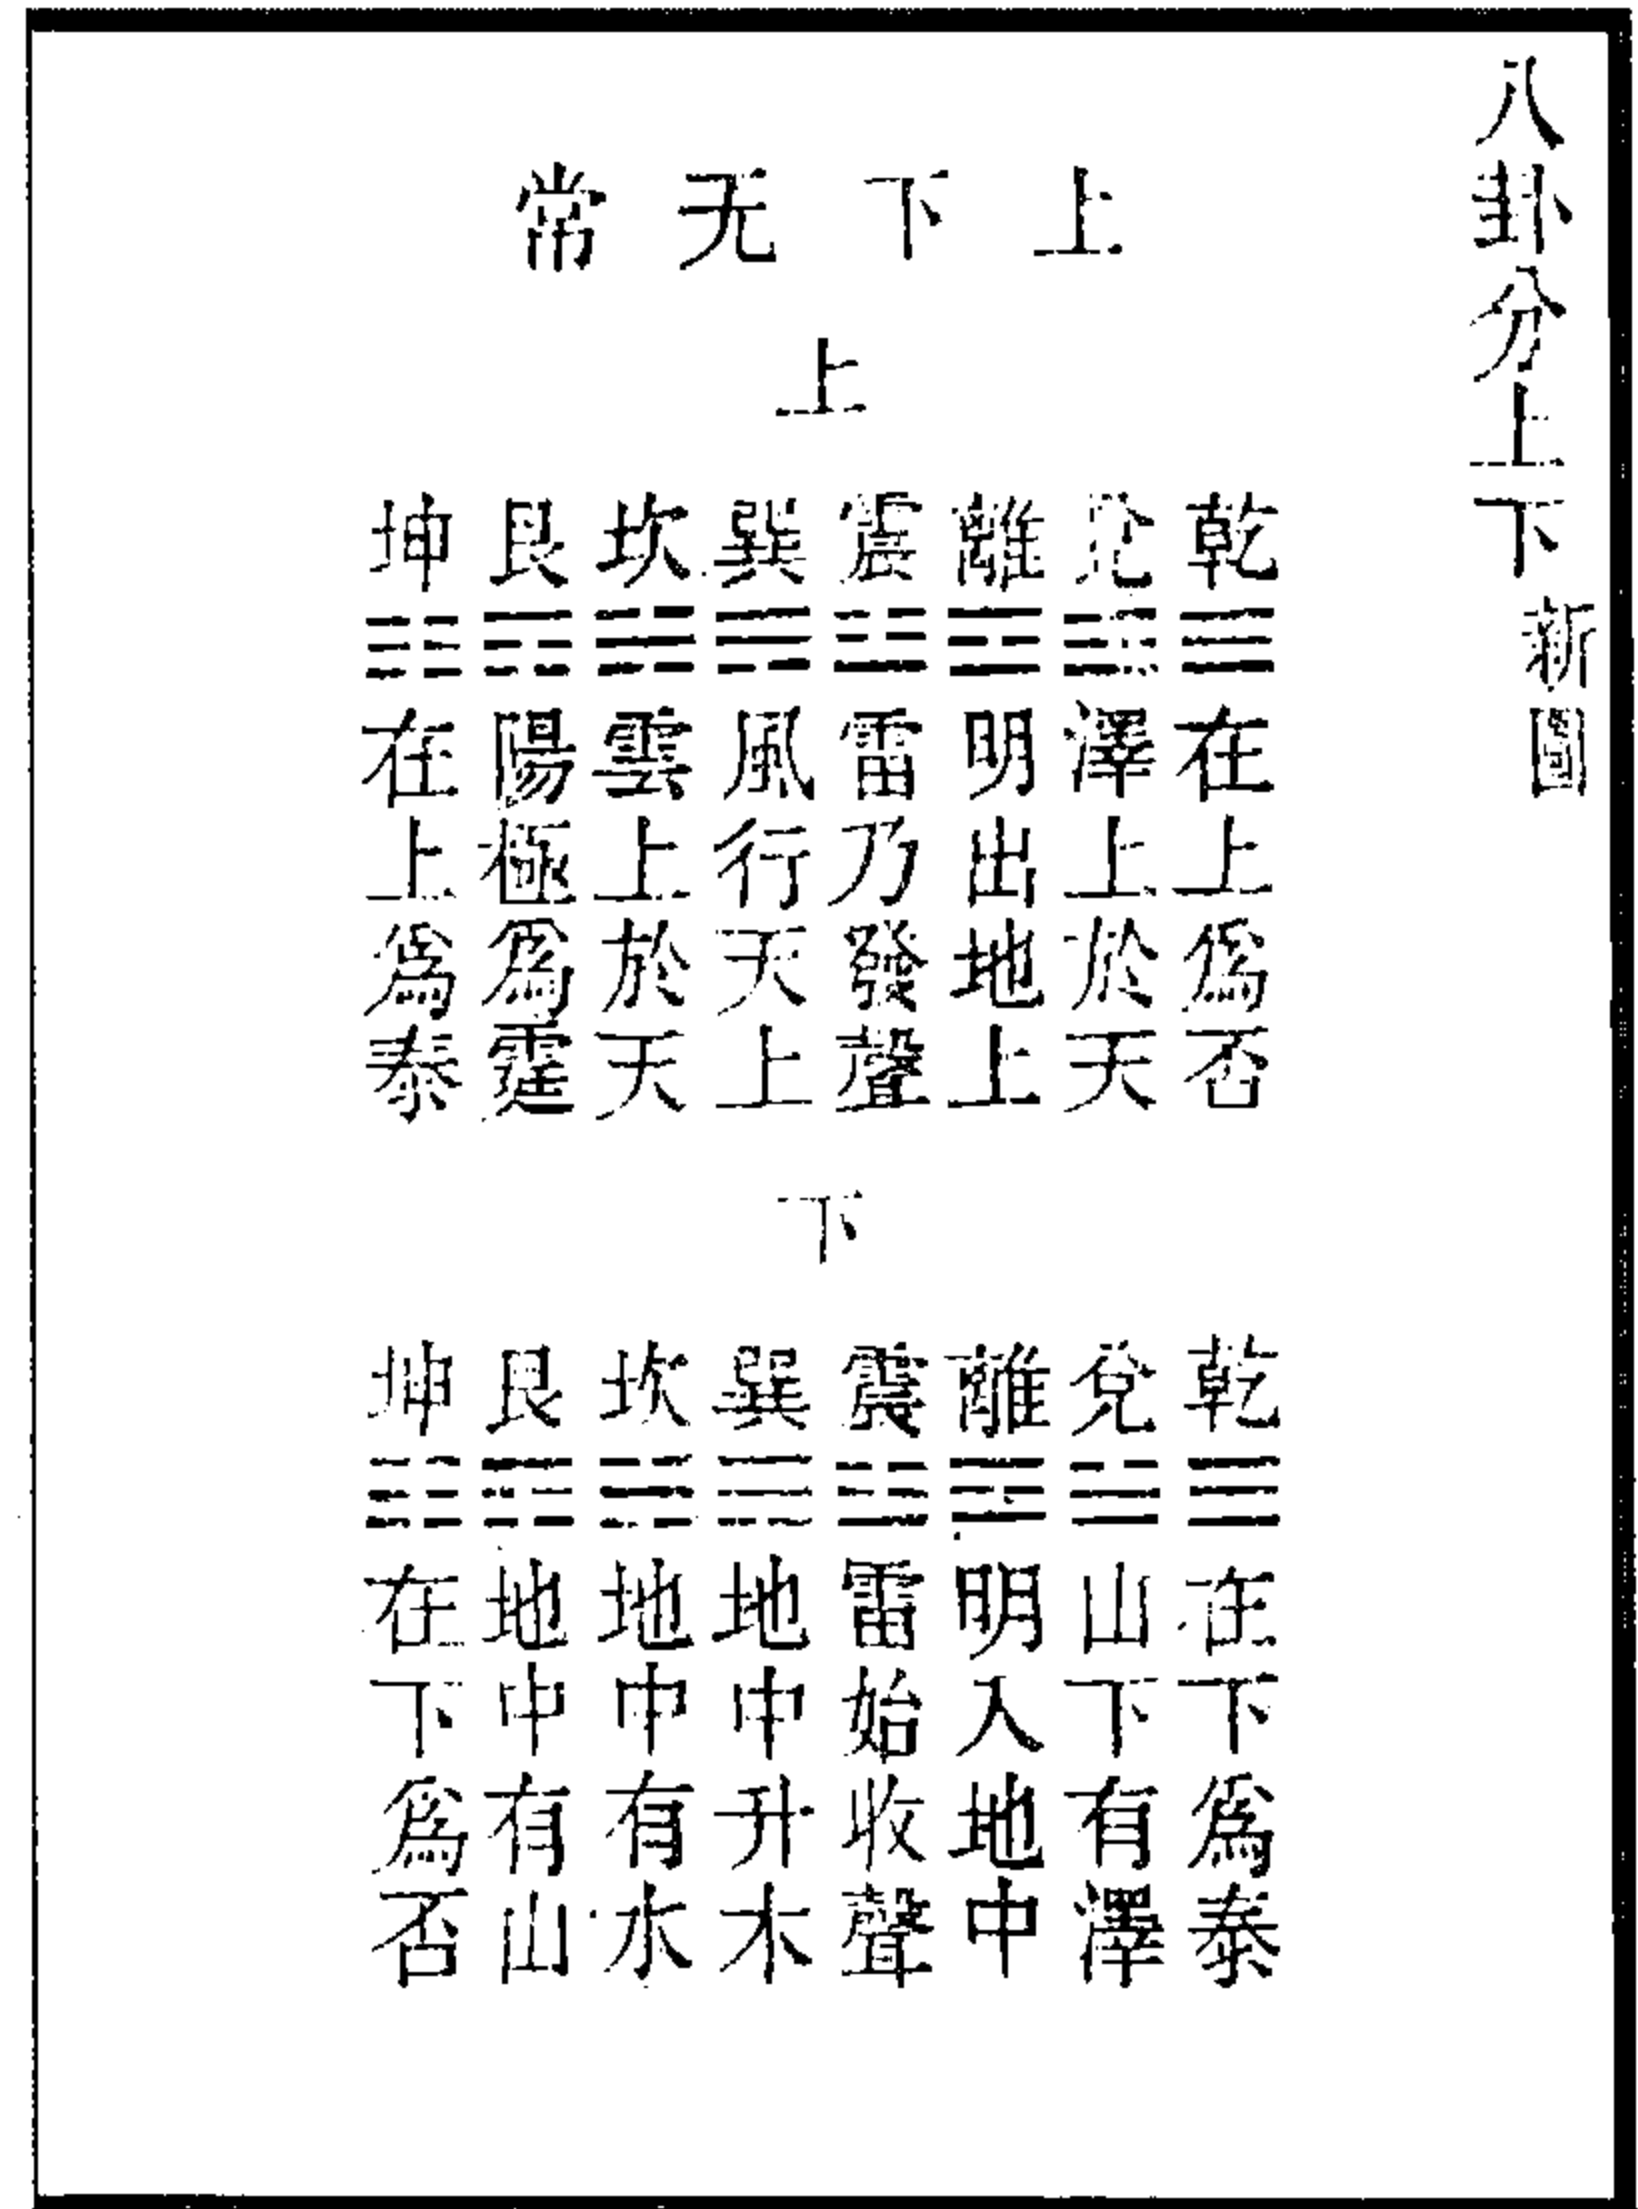 八卦分上下 新圖
上下无常
上
乾 在上爲否
兌 澤上於天
離 明出地上
震 雷乃發聲
巽 風行天上
坎 雲上於天
艮 陽極爲霆
坤 在上爲泰
下
乾 在下爲泰
兌 山下有澤
離 明入地中
震 雷始收聲
巽 地中升木
坎 地中有水
艮 地中有山
坤 在下爲否